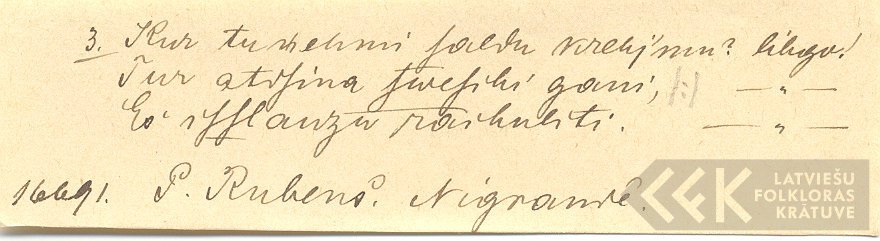 3. Kur tu ņehmi saldu krehjmu? lihgo!
Tur atdsina sweschi gani, /:/ — „ —
Es isslauzu raibuliti. — „ —
16691. P. Rubenš. Nīgrandē.
LATVIEŠU
FOLKLORAS
KRĀTUVE